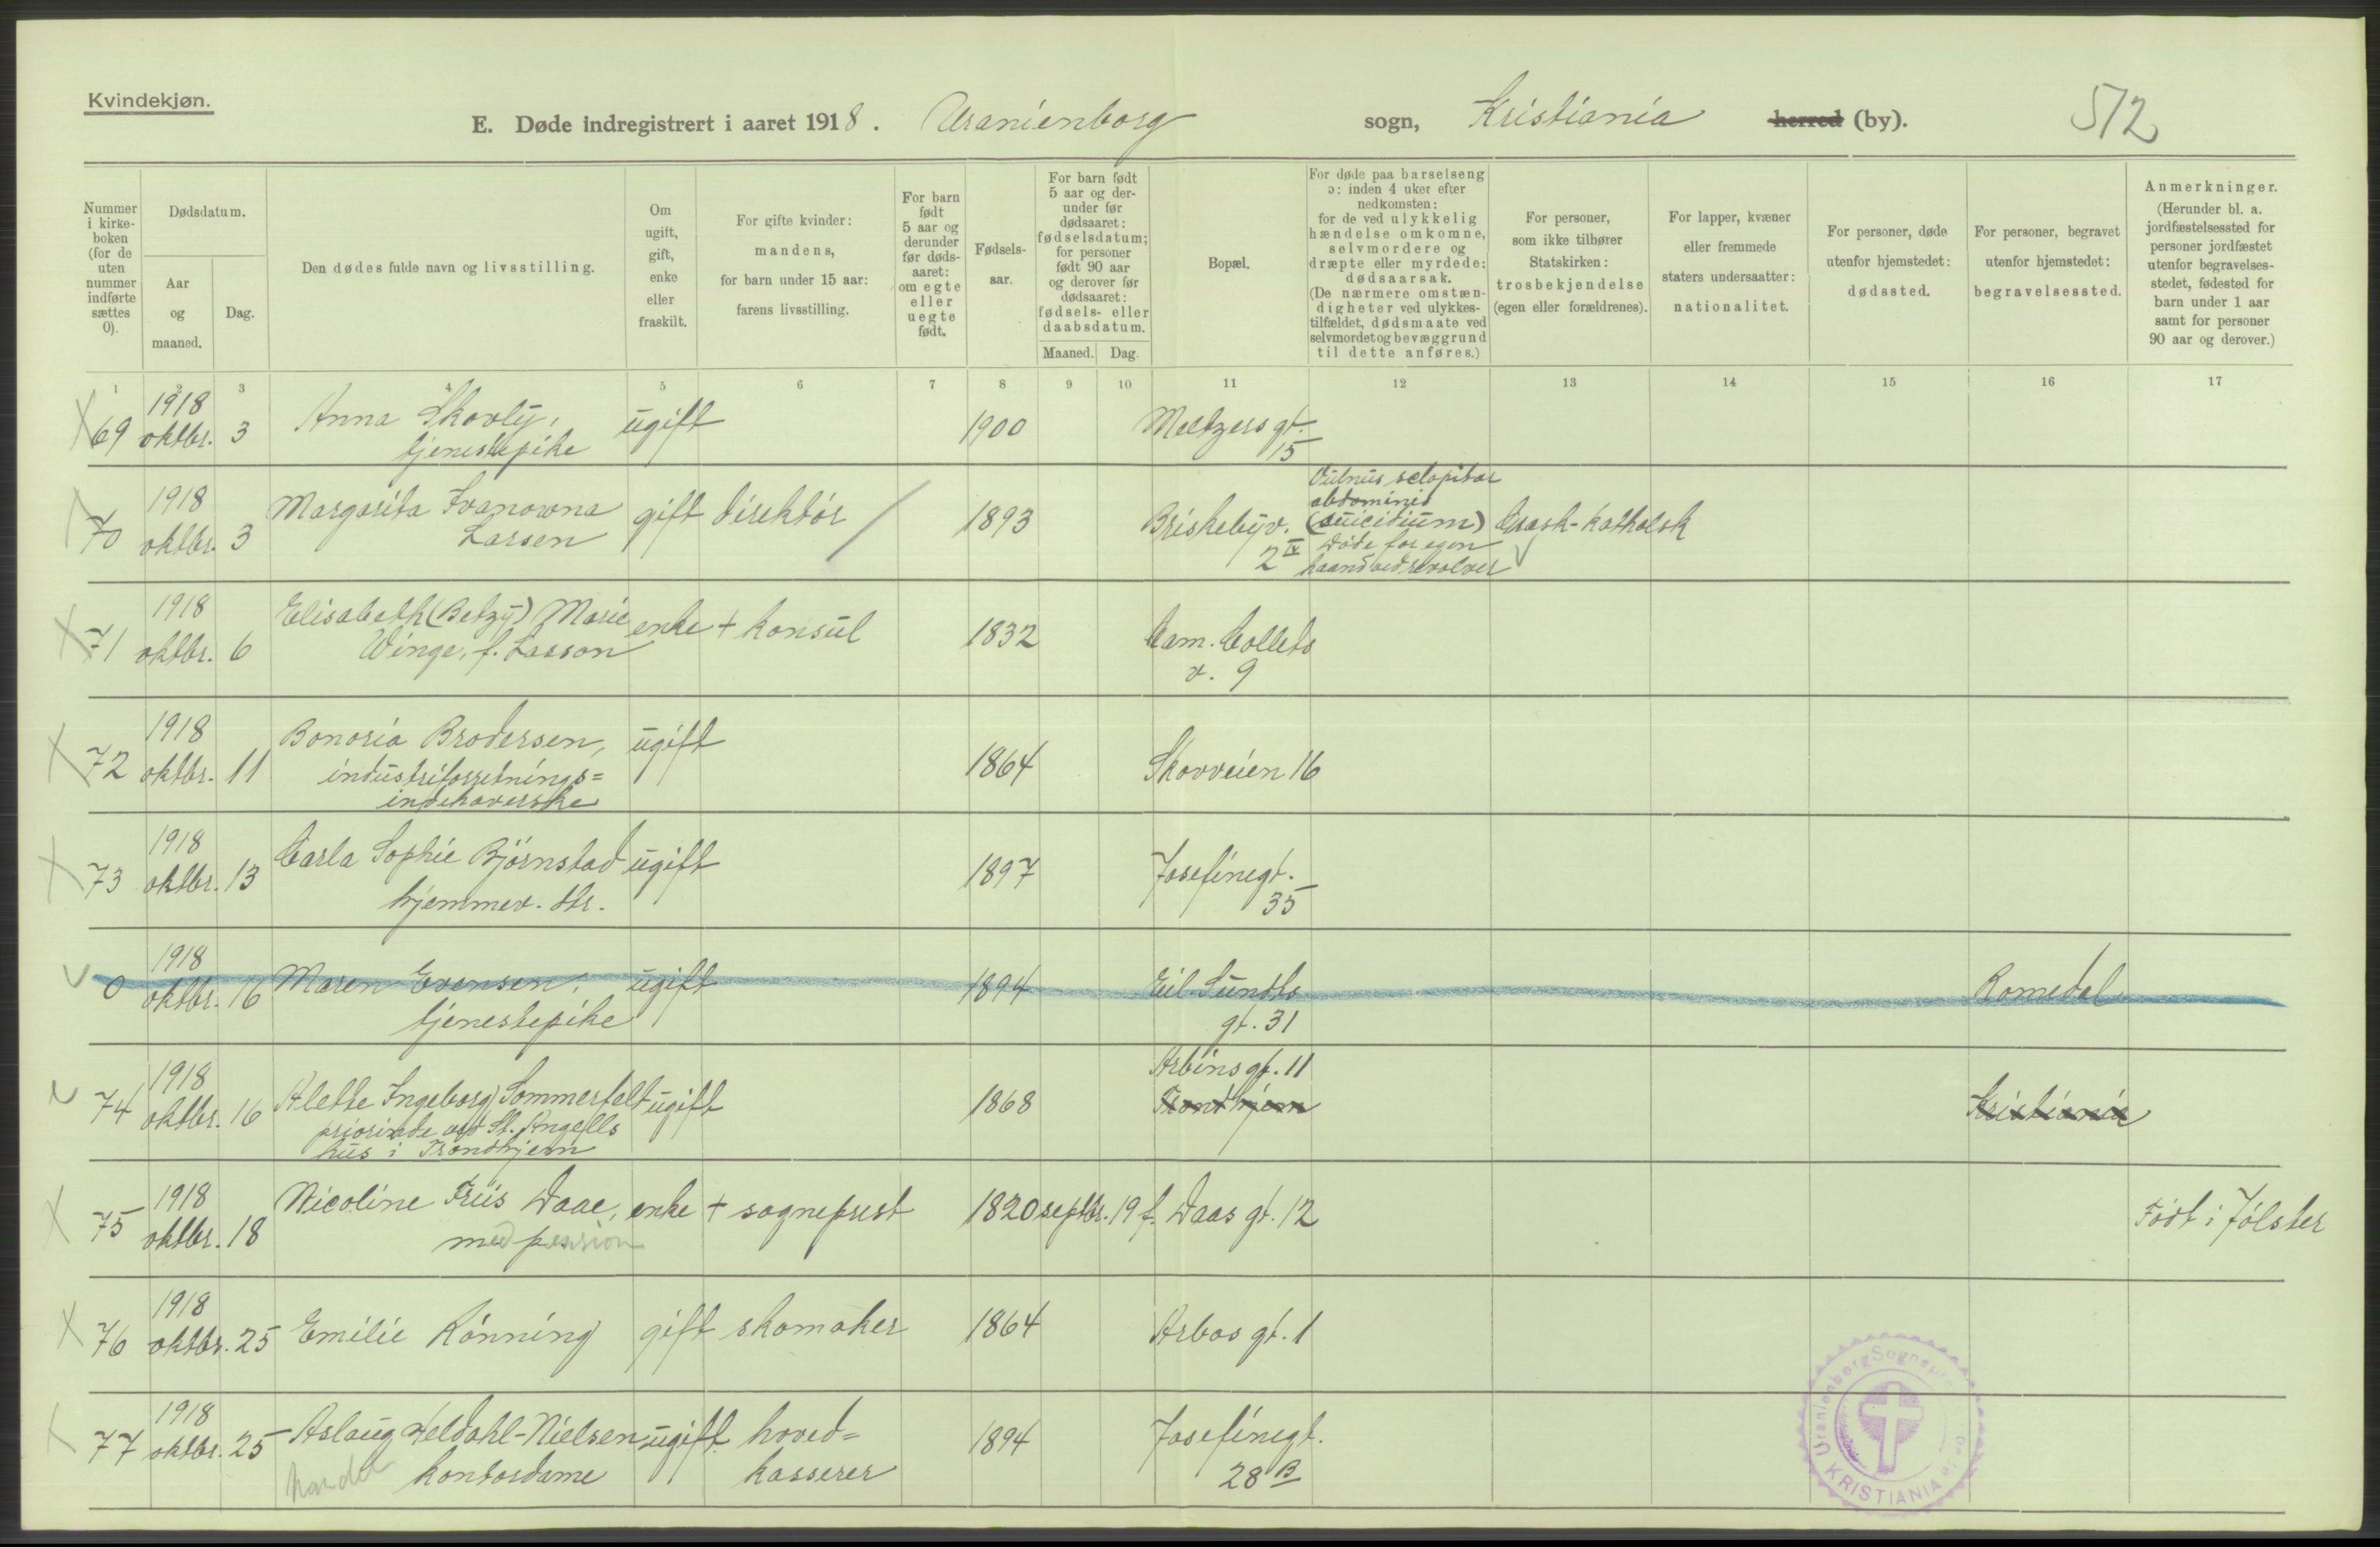 Kvindekjøn.
E. Døde indregistrert i aaret 1918. Uranienborg sogn, Kristiania herred (by).
512
Nummer i kirke-boken (for de uten nummer indførte sættes 0).
Dødsdatum.
Aar og maaned.
Dag.
Den dødes fulde navn og livsstilling.
Om ugift, gift, enke eller fraskilt.
For gifte kvinder: mandens, for barn under 15 aar: farens livsstilling.
For barn født 5 aar og derunder før døds-aaret: om egte eller uegte født.
Fødsels-aar.
For barn født 5 aar og der-under før dødsaaret: fødselsdatum; for personer født 90 aar og derover før dødsaaret: fødsels- eller daabsdatum.
Maaned. Dag.
Bopæl.
For døde paa barselseng ɔ: inden 4 uker efter nedkomsten: for de ved ulykkelig hændelse omkomne, selvmordere og dræpte eller myrdede: dødsaarsak. (De nærmere omstæn-digheter ved ulykkes-tilfældet, dødsmaate ved selvmordet og bevæggrund til dette anføres.)
For personer, som ikke tilhører Statskirken: trosbekjendelse (egen eller forældrenes).
For lapper, kvæner eller fremmede staters undersaatter: nationalitet.
For personer, døde utenfor hjemstedet: dødssted.
For personer, begravet utenfor hjemstedet: begravelsessted.
Anmerkninger. (Herunder bl. a. jordfæstelsessted for personer jordfæstet utenfor begravelses-stedet, fødested for barn under 1 aar samt for personer 90 aar og derover.)
1 2 3 4 5 6 7 8 9 10 11 12 13 14 15 16 17
69 1918 oktbr. 3 Anna Skovly, ugift 1900 Meltzers gt. 15
tjenestepike
70 1918 oktbr. 3 Margarita Ivanowna Larsen gift direktør 1893 Briskebyv. 2 IV
Vulnus sclopitar abdominis (suicidium) Døde for egen haand ved revolver
græsk-katholsk
71 1918 oktbr. 6 Elisabeth (Betzy) Marie Winge, f. Lasson enke + konsul 1832 Cam. Colletts v. 9
72 1918 oktbr. 11 Bonoria Brodersen, ugift 1864 Skovveien 16
industriforretnings=
indehaverske
73 1918 oktbr. 13 Carla Sophie Bjørnstad ugift 1897 Josefinegt. 35
hjemmev. dtr.
0 1918 oktbr. 16 Maren Evensen, ugift 1894 Eil. Sundts gt. 31 Romedal
tjenestepike
74 1918 oktbr. 16 Alette Ingeborg Sommerfelt ugift 1868 Arbins gt. 11 Trondhjem Kristiania
priorinde ved Th. Angells
hus i Trondhjem
75 1918 oktbr. 18 Nicoline Friis Daae, enke + sogneprest 1820 septbr. 19 L. Daas gt. 12 Født i Jølster
med pension
76 1918 oktbr. 25 Emilie Rønning gift skomaker 1864 Arbos gt. 1
77 1918 oktbr. 25 Aslaug Heldahl-Nielsen ugift hoved=kasserer 1894 Josefinegt. 28 B
handel kontordame
Uranienborg Sognepr
KRISTIANIA